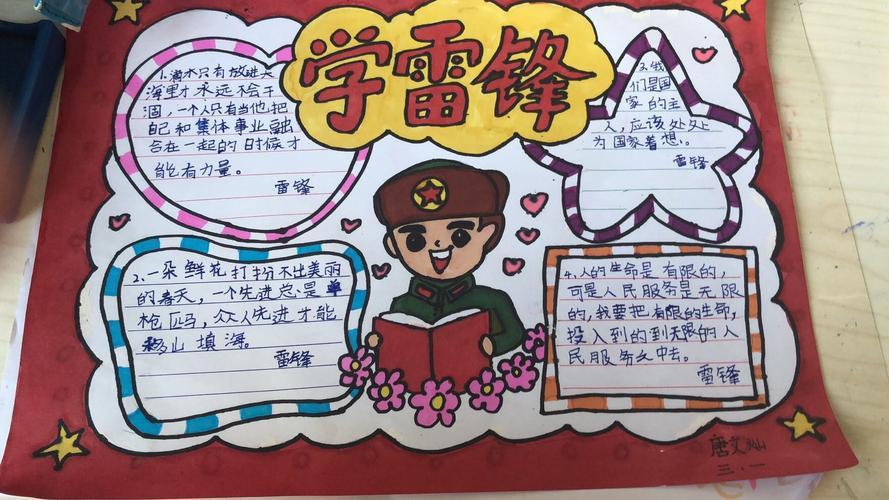 学雷锋
1.滴水只有放进大
海里才永远不会干
涸，一个人只有当他把
自己和集体事业融
合在一起的时候才
能有力量。
雷锋
3.我
们是国
家的主
人，应该处处
为国家着想。
雷锋
2.一朵鲜花打扮不出美丽
的春天，一个先进总是单
枪匹马，众人先进才能
移山填海。
雷锋
4.人的生命是有限的，
可是人民服务是无限
的，我要把有限的生命，
投入到的到无限的人
民服务之中去。
雷锋
唐艾灿
三、一